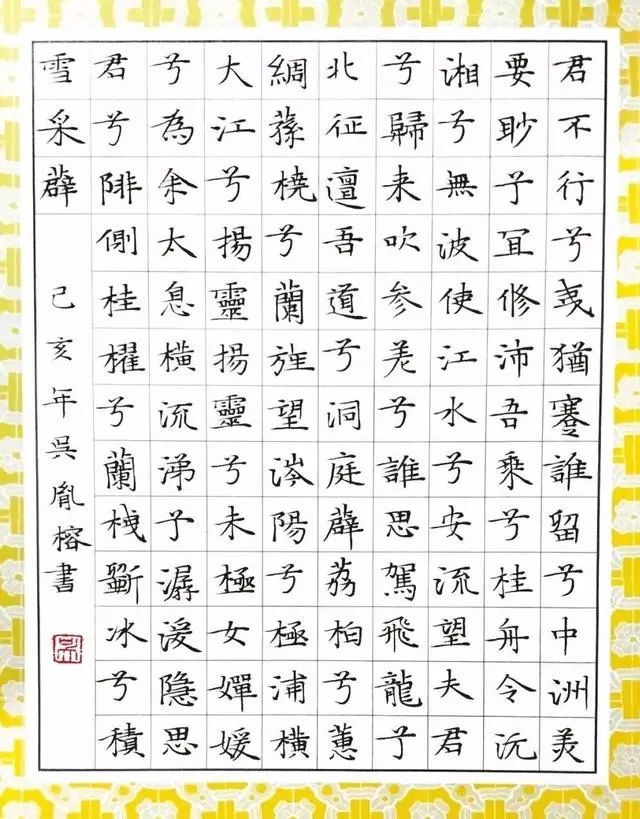 君不行兮夷猶蹇誰留兮中洲美
要眇兮宜修沛吾乘兮桂舟令沅
湘兮無波使江水兮安流望夫君
兮歸来吹参差兮誰思駕飛龍兮
北征邅吾道兮洞庭薜荔柏兮蕙
綢蓀橈兮蘭旌望涔陽兮極浦橫
大江兮揚靈揚靈兮未極女嬋媛
兮為余太息橫流涕予潺湲隱思
君兮陫側桂櫂兮蘭枻斲冰兮積
雪采薜
己亥年吳胤榕書